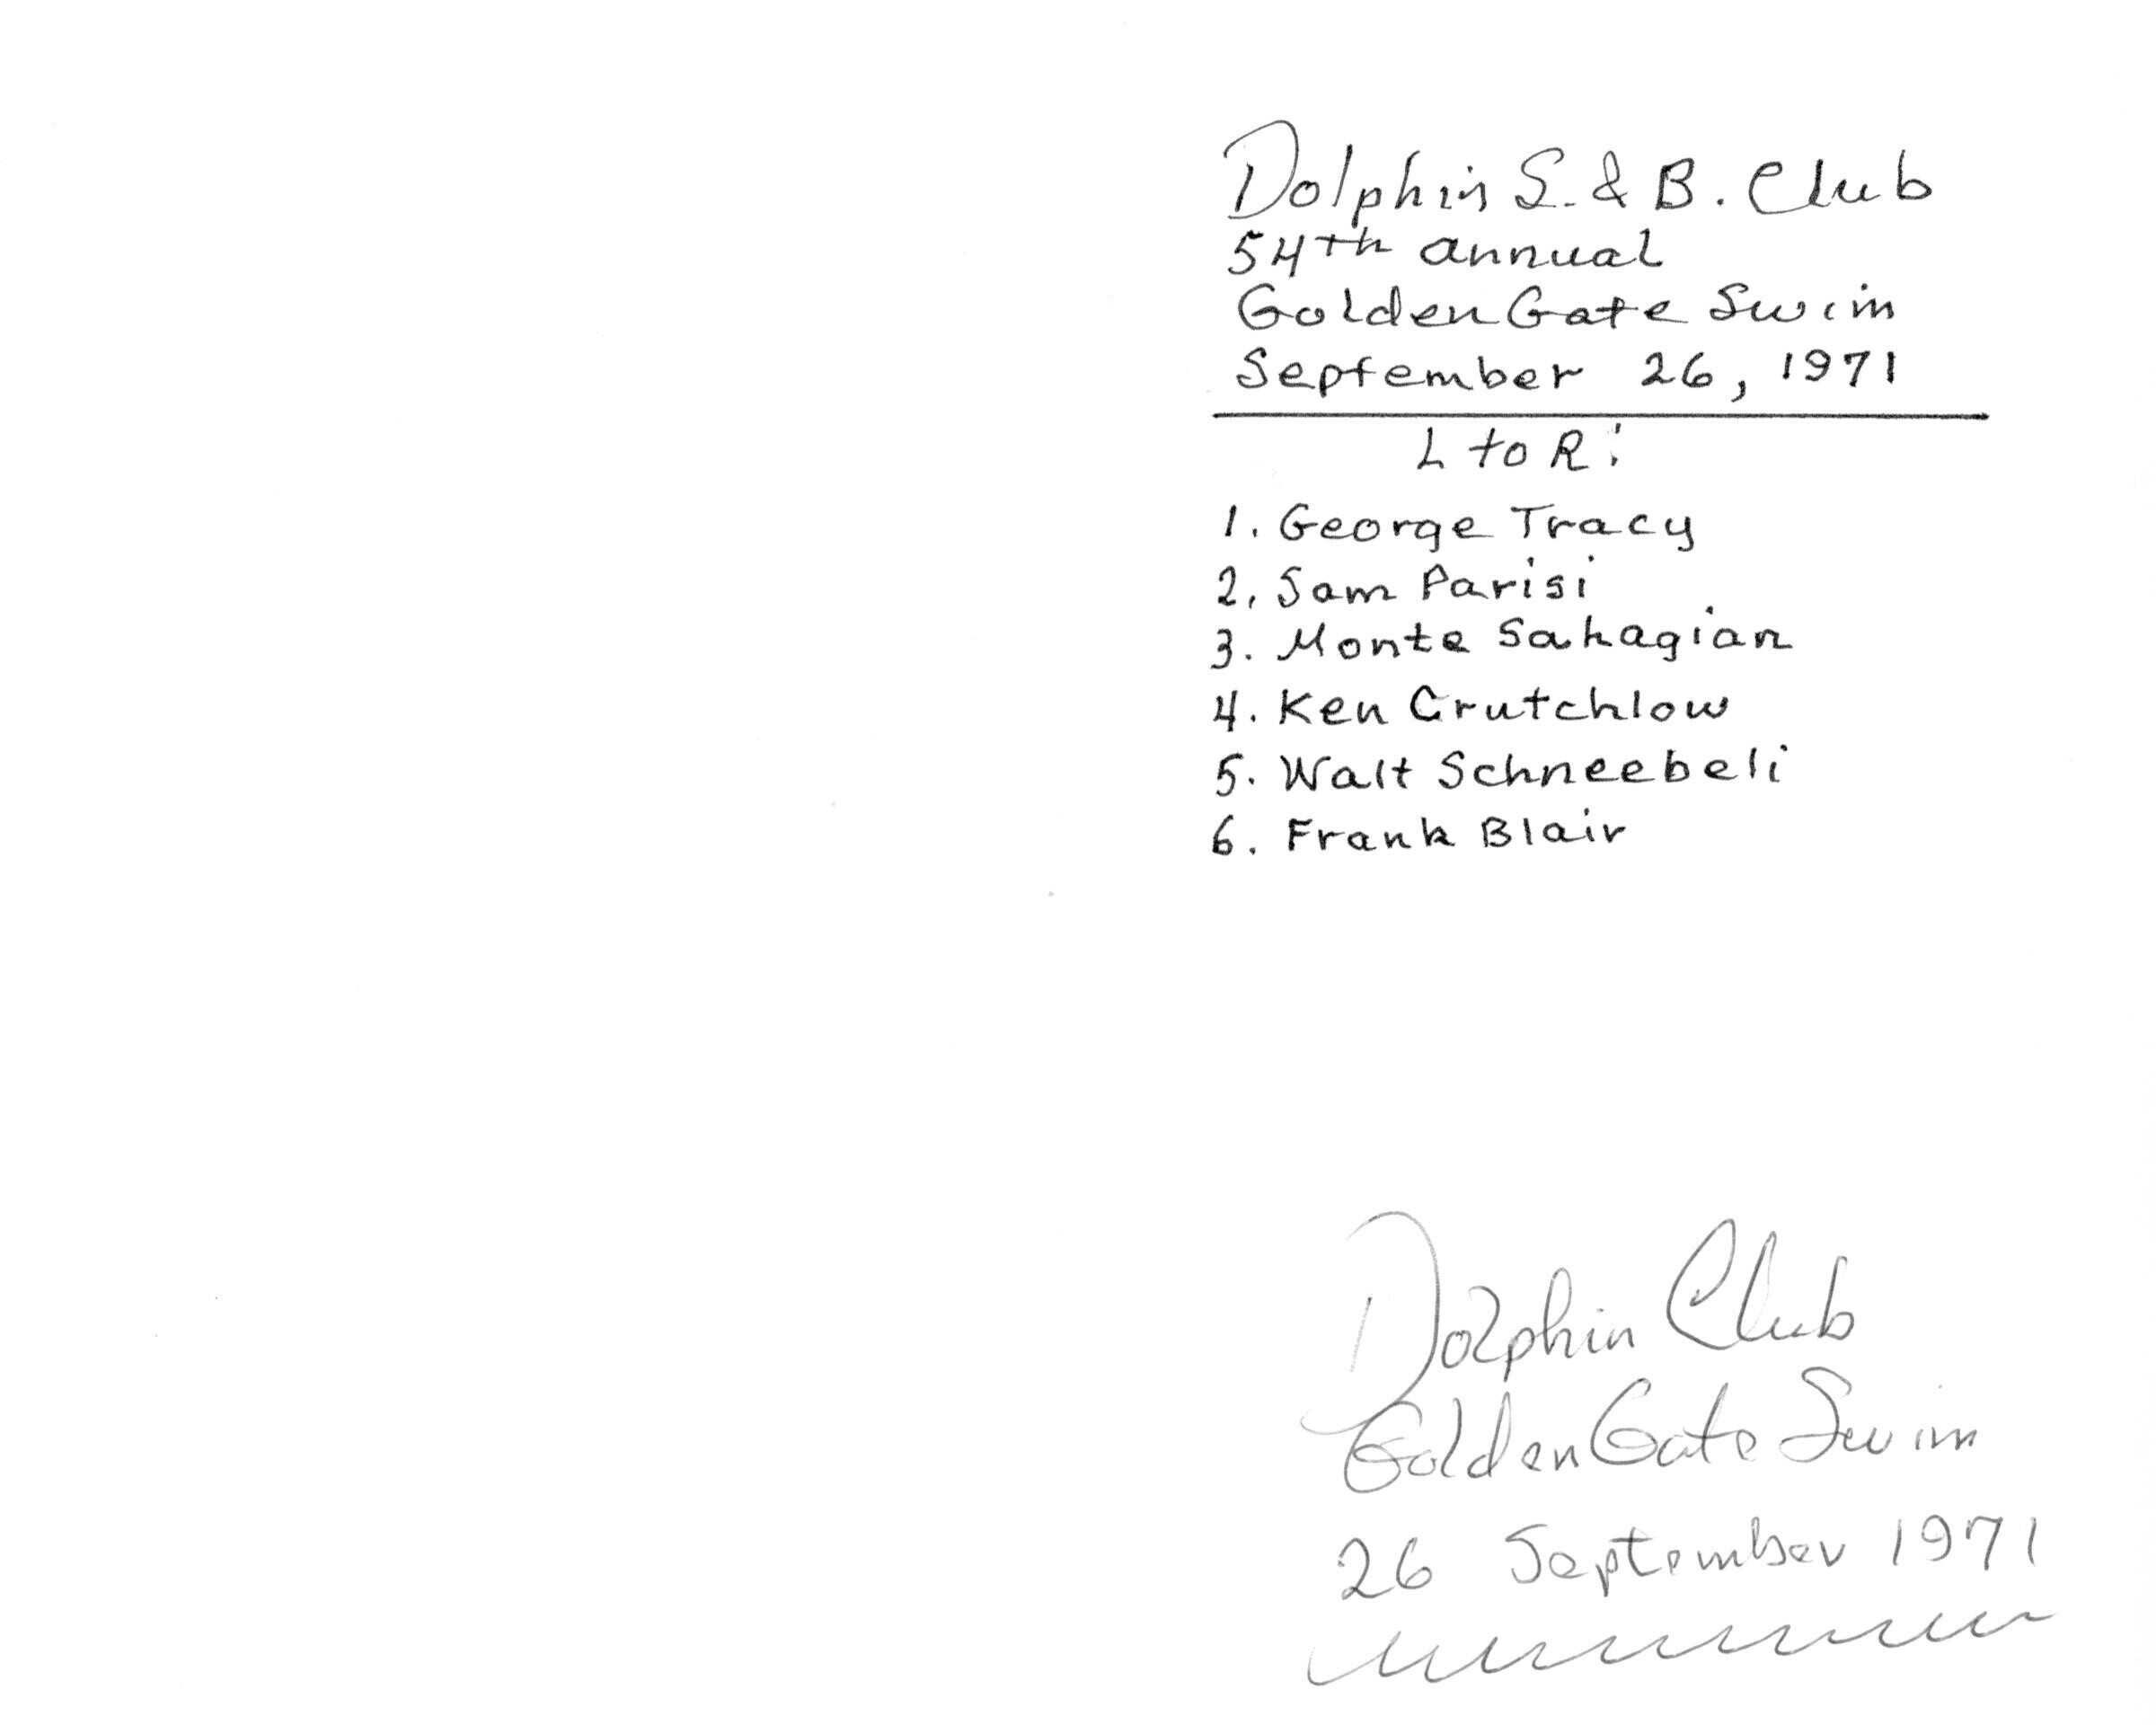 Dolphin S. & B. Club
54th annual
Golden Gate Swim
September 26, 1971
L to R:
1. George Tracy
2. Sam Parisi
3. Monte Sahagian
4. Ken Crutchlow
5. Walt Schneebeli
6. Frank Blair
Dolphin Club
Golden Gate Swim
26 September 1971